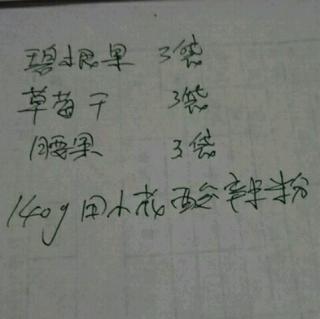 碧根果 3袋
草莓干 3袋
腰果 3袋
140g田小花酸辣粉